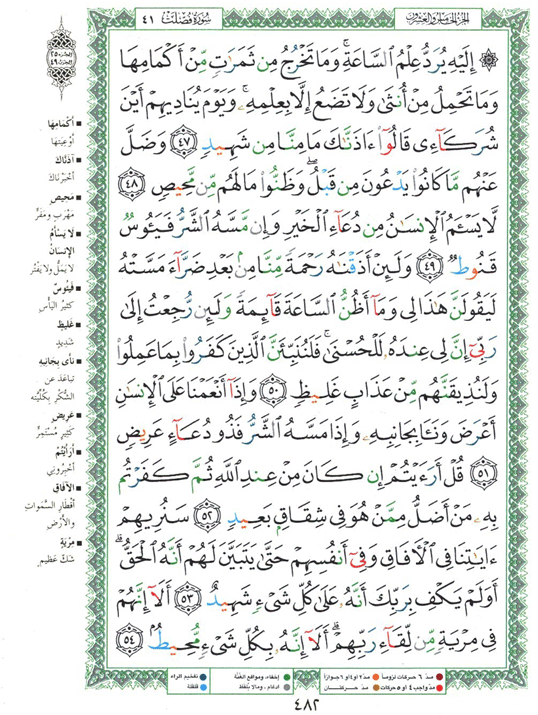 الجزء الخامس والعشرون
سورة فصلت ٤١
۞ إِلَيْهِ يُرَدُّ عِلْمُ ٱلسَّاعَةِ ۚ وَمَا تَخْرُجُ مِن ثَمَرَٰتٍ مِّنْ أَكْمَامِهَا
وَمَا تَحْمِلُ مِنْ أُنثَىٰ وَلَا تَضَعُ إِلَّا بِعِلْمِهِۦ ۚ وَيَوْمَ يُنَادِيهِمْ أَيْنَ
شُرَكَآءِى قَالُوٓا۟ ءَاذَنَّٰكَ مَا مِنَّا مِن شَهِيدٍ ٤٧ وَضَلَّ
عَنْهُم مَّا كَانُوا۟ يَدْعُونَ مِن قَبْلُ ۖ وَظَنُّوا۟ مَا لَهُم مِّن مَّحِيصٍ ٤٨
لَّا يَسْـَٔمُ ٱلْإِنسَٰنُ مِن دُعَآءِ ٱلْخَيْرِ وَإِن مَّسَّهُ ٱلشَّرُّ فَيَـُٔوسٌ
قَنُوطٌ ٤٩ وَلَئِنْ أَذَقْنَٰهُ رَحْمَةً مِّنَّا مِنۢ بَعْدِ ضَرَّآءَ مَسَّتْهُ
لَيَقُولَنَّ هَٰذَا لِى وَمَآ أَظُنُّ ٱلسَّاعَةَ قَآئِمَةً وَلَئِن رُّجِعْتُ إِلَىٰ
رَبِّىٓ إِنَّ لِى عِندَهُۥ لَلْحُسْنَىٰ ۚ فَلَنُنَبِّئَنَّ ٱلَّذِينَ كَفَرُوا۟ بِمَا عَمِلُوا۟
وَلَنُذِيقَنَّهُم مِّنْ عَذَابٍ غَلِيظٍ ٥٠ وَإِذَآ أَنْعَمْنَا عَلَى ٱلْإِنسَٰنِ
أَعْرَضَ وَنَـَٔا بِجَانِبِهِۦ وَإِذَا مَسَّهُ ٱلشَّرُّ فَذُو دُعَآءٍ عَرِيضٍ
٥١ قُلْ أَرَءَيْتُمْ إِن كَانَ مِنْ عِندِ ٱللَّهِ ثُمَّ كَفَرْتُم
بِهِۦ مَنْ أَضَلُّ مِمَّنْ هُوَ فِى شِقَاقٍۭ بَعِيدٍ ٥٢ سَنُرِيهِمْ
ءَايَٰتِنَا فِى ٱلْـَٔافَاقِ وَفِىٓ أَنفُسِهِمْ حَتَّىٰ يَتَبَيَّنَ لَهُمْ أَنَّهُ ٱلْحَقُّ ۗ
أَوَلَمْ يَكْفِ بِرَبِّكَ أَنَّهُۥ عَلَىٰ كُلِّ شَىْءٍ شَهِيدٌ ٥٣ أَلَآ إِنَّهُمْ
فِى مِرْيَةٍ مِّن لِّقَآءِ رَبِّهِمْ ۗ أَلَآ إِنَّهُۥ بِكُلِّ شَىْءٍ مُّحِيطٌۢ ٥٤
أكمامها
أوعيتها
آذناك
أخبرناك
محيص
مهرب ومفر
لا يسأم
الإنسان
لا يمل ولا يفتر
فيئوس
كثير اليأس
غليظ
شديد
نأى بجانبه
تباعد عن
الشكر بكليته
عريض
كثير مستمر
أرأيتم
أخبروني
الآفاق
أقطار السموات
والأرض
مرية
شك عظيم
مد ٦ حركات لزوماً
مد ٢ أو ٤ أو ٦ جوازاً
إخفاء، ومواقع الغنة
تفخيم الراء
مد واجب ٤ أو ٥ حركات
مد حركتان
إدغام، وما لا يلفظ
قلقلة
٤٨٢